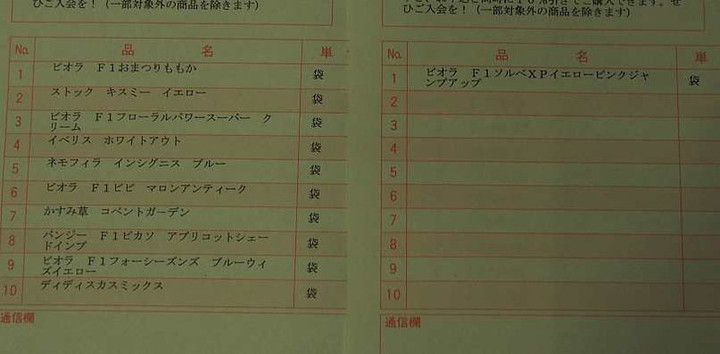 ひご入会を！（一部対象外の商品を除きます）
No. 品 名 単
1 ビオラ F1おまつりももか 袋
2 ストック キスミー イエロー 袋
3 ビオラ F1フローラルパワースーパー ク
リーム 袋
4 イベリス ホワイトアウト 袋
5 ネモフィラ インシグニス ブルー 袋
6 ビオラ F1ビビ マロンアンティーク 袋
7 かすみ草 コベントガーデン 袋
8 パンジー F1ピカソ アプリコットシェー
ドインプ 袋
9 ビオラ F1フォーシーズンズ ブルーウィ
ズイエロー 袋
10 ディディスカスミックス 袋
通信欄
同時に10％引きでご購入できます。ぜ
ひご入会を！（一部対象外の商品を除きます）
No. 品 名 単
1 ビオラ F1ソルベXPイエローピンクジャ
ンプアップ 袋
2
3
4
5
6
7
8
9
10
通信欄